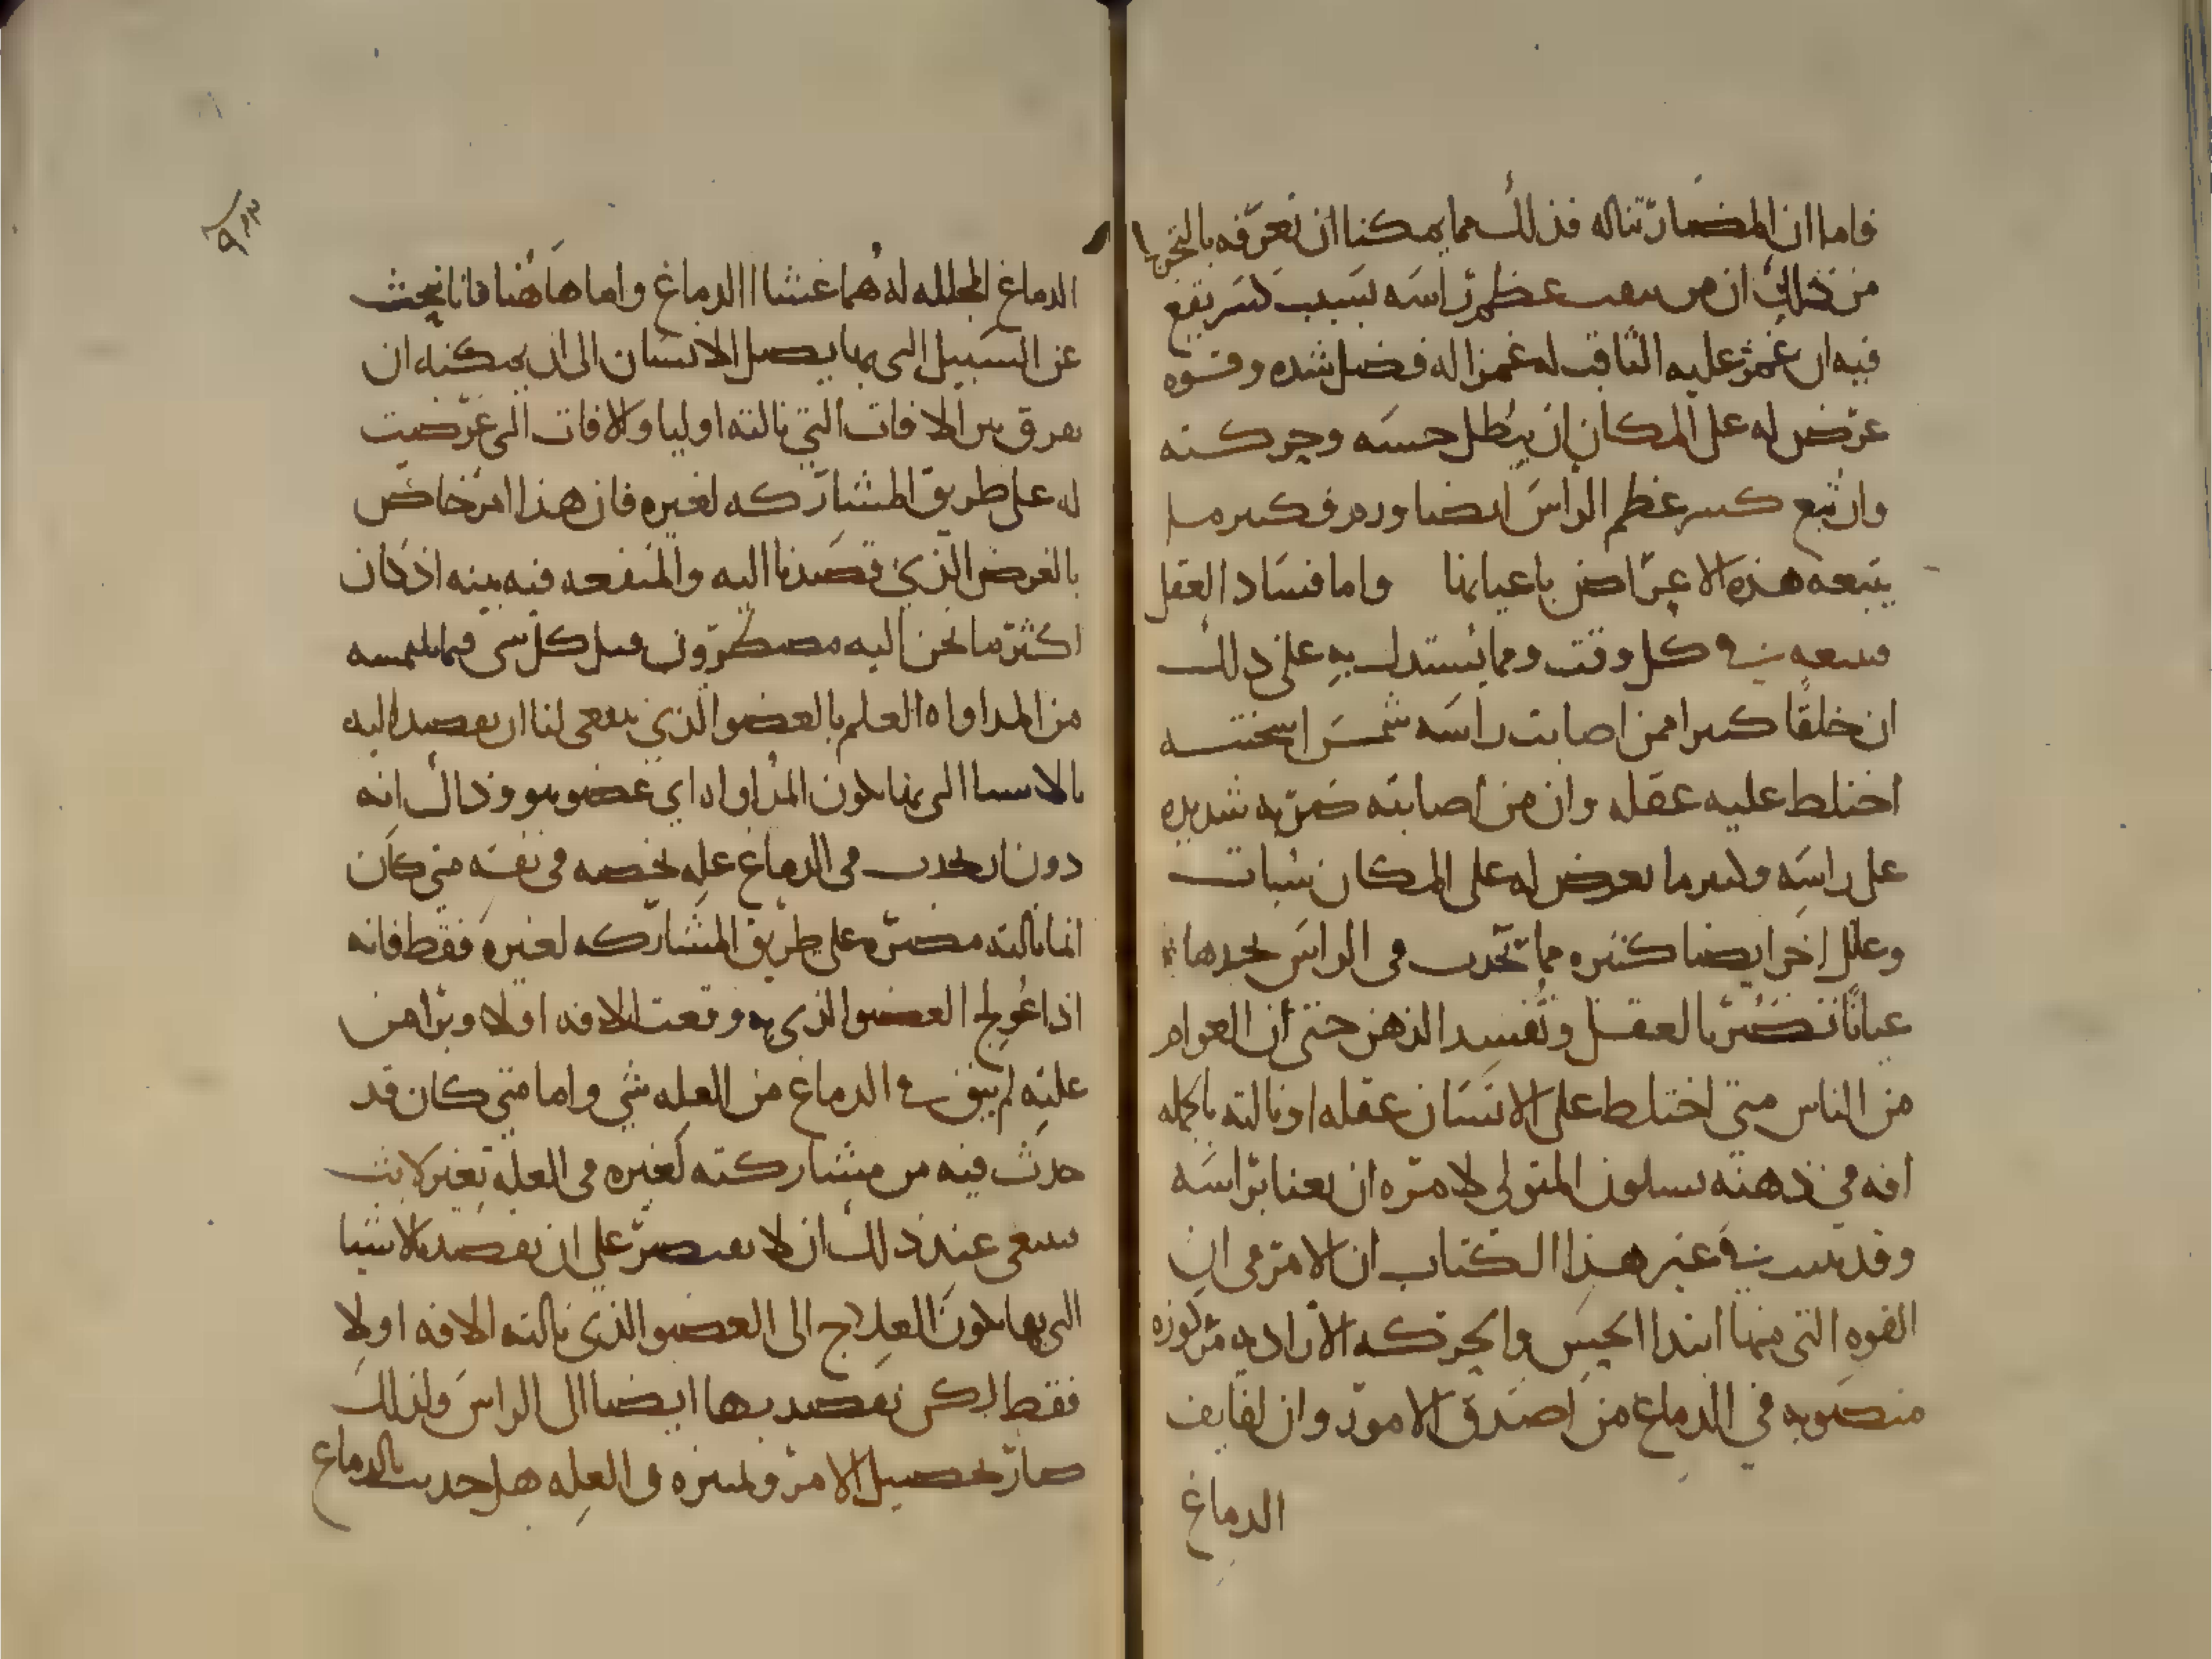 فاما ان المضار تناله فذلك مما يمكننا ان نعرفه بالتجربا
من ذلك ان من عظم راسه بسبب كسر يقع
فيه ان غمز عليه الثاقب له غمزا له فضل شده وقوه
عرض له على المكان ان يبطل حسه وحركته
وان تبع كسر عظم الراس ايضا ورم فكثير ما
يتبعه هذه الاعراض باعيانها واما فساد العقل
في كل وقت ومما يستدل به على ذلك
ان خلقا كثيرا ممن اصابت راسه شمس اسخنته
اختلط عليه عقله وان من اصابته ضربه شديده
على راسه وكثير ما يعرض له على المكان سبات
وعلل اخر ايضا كثيره مما تحدث في الراس نجدها
عيانا تضر بالعقل وتفسد الذهن حتى ان العوام
من الناس متى اختلط على الانسان عقله او نالته بالجمله
افه في ذهنه يسلون المتولي لامره ان يعنا براسه
وقد بينت في غير هذا الكتاب ان الامر في ان
القوه التي منها ابتدا الحس والحركه الاراديه مركوزه
منصوبه في الدماغ من اصدق الامور وان لفايف
الدماغ
الدماغ المجلله له هما غشاا الدماغ واما هاهنا فانا نبحث
عن السبيل التي بها يصل الانسان الى ان يمكنه ان
يفرق بين الافات التي نالته اوليا والافات التي عرضت
له على طريق المشاركه لغيره فان هذا امر خاص
بالغرض الذي قصدنا اليه والمنفعه فيه بينه اذ كان
اكثر ما نحن اليه مضطرون قبل كل شي فيما نلتمسه
من المداواه العلم بالعضو الذي ينبغي لنا ان نقصد اليه
بالاشيا التي بها تكون المداواه اي عضو هو وذاك انه
دون ان يحدث في الدماغ عله تخصه في نفسه متى كان
انما نالته مضره على طريق المشاركه لغيره فقط فانه
اذا عولج العضو الذي به وقعت الافه اولا وبرا من
علته لم يبق في الدماغ من العله شي واما متى كان قد
حدث فيه من مشاركته لغيره في العله تغير لابث
ينبغي عند ذلك ان لا نقتصر على ان نقصد بالاشيا
التي بها تكون العلاج الى العضو الذي نالته الافه اولا
فقط لكن نقصد بها ايضا الى الراس ولذلك
صار تحصيل الامر وتميزه في العله هل حدثت بالدماغ